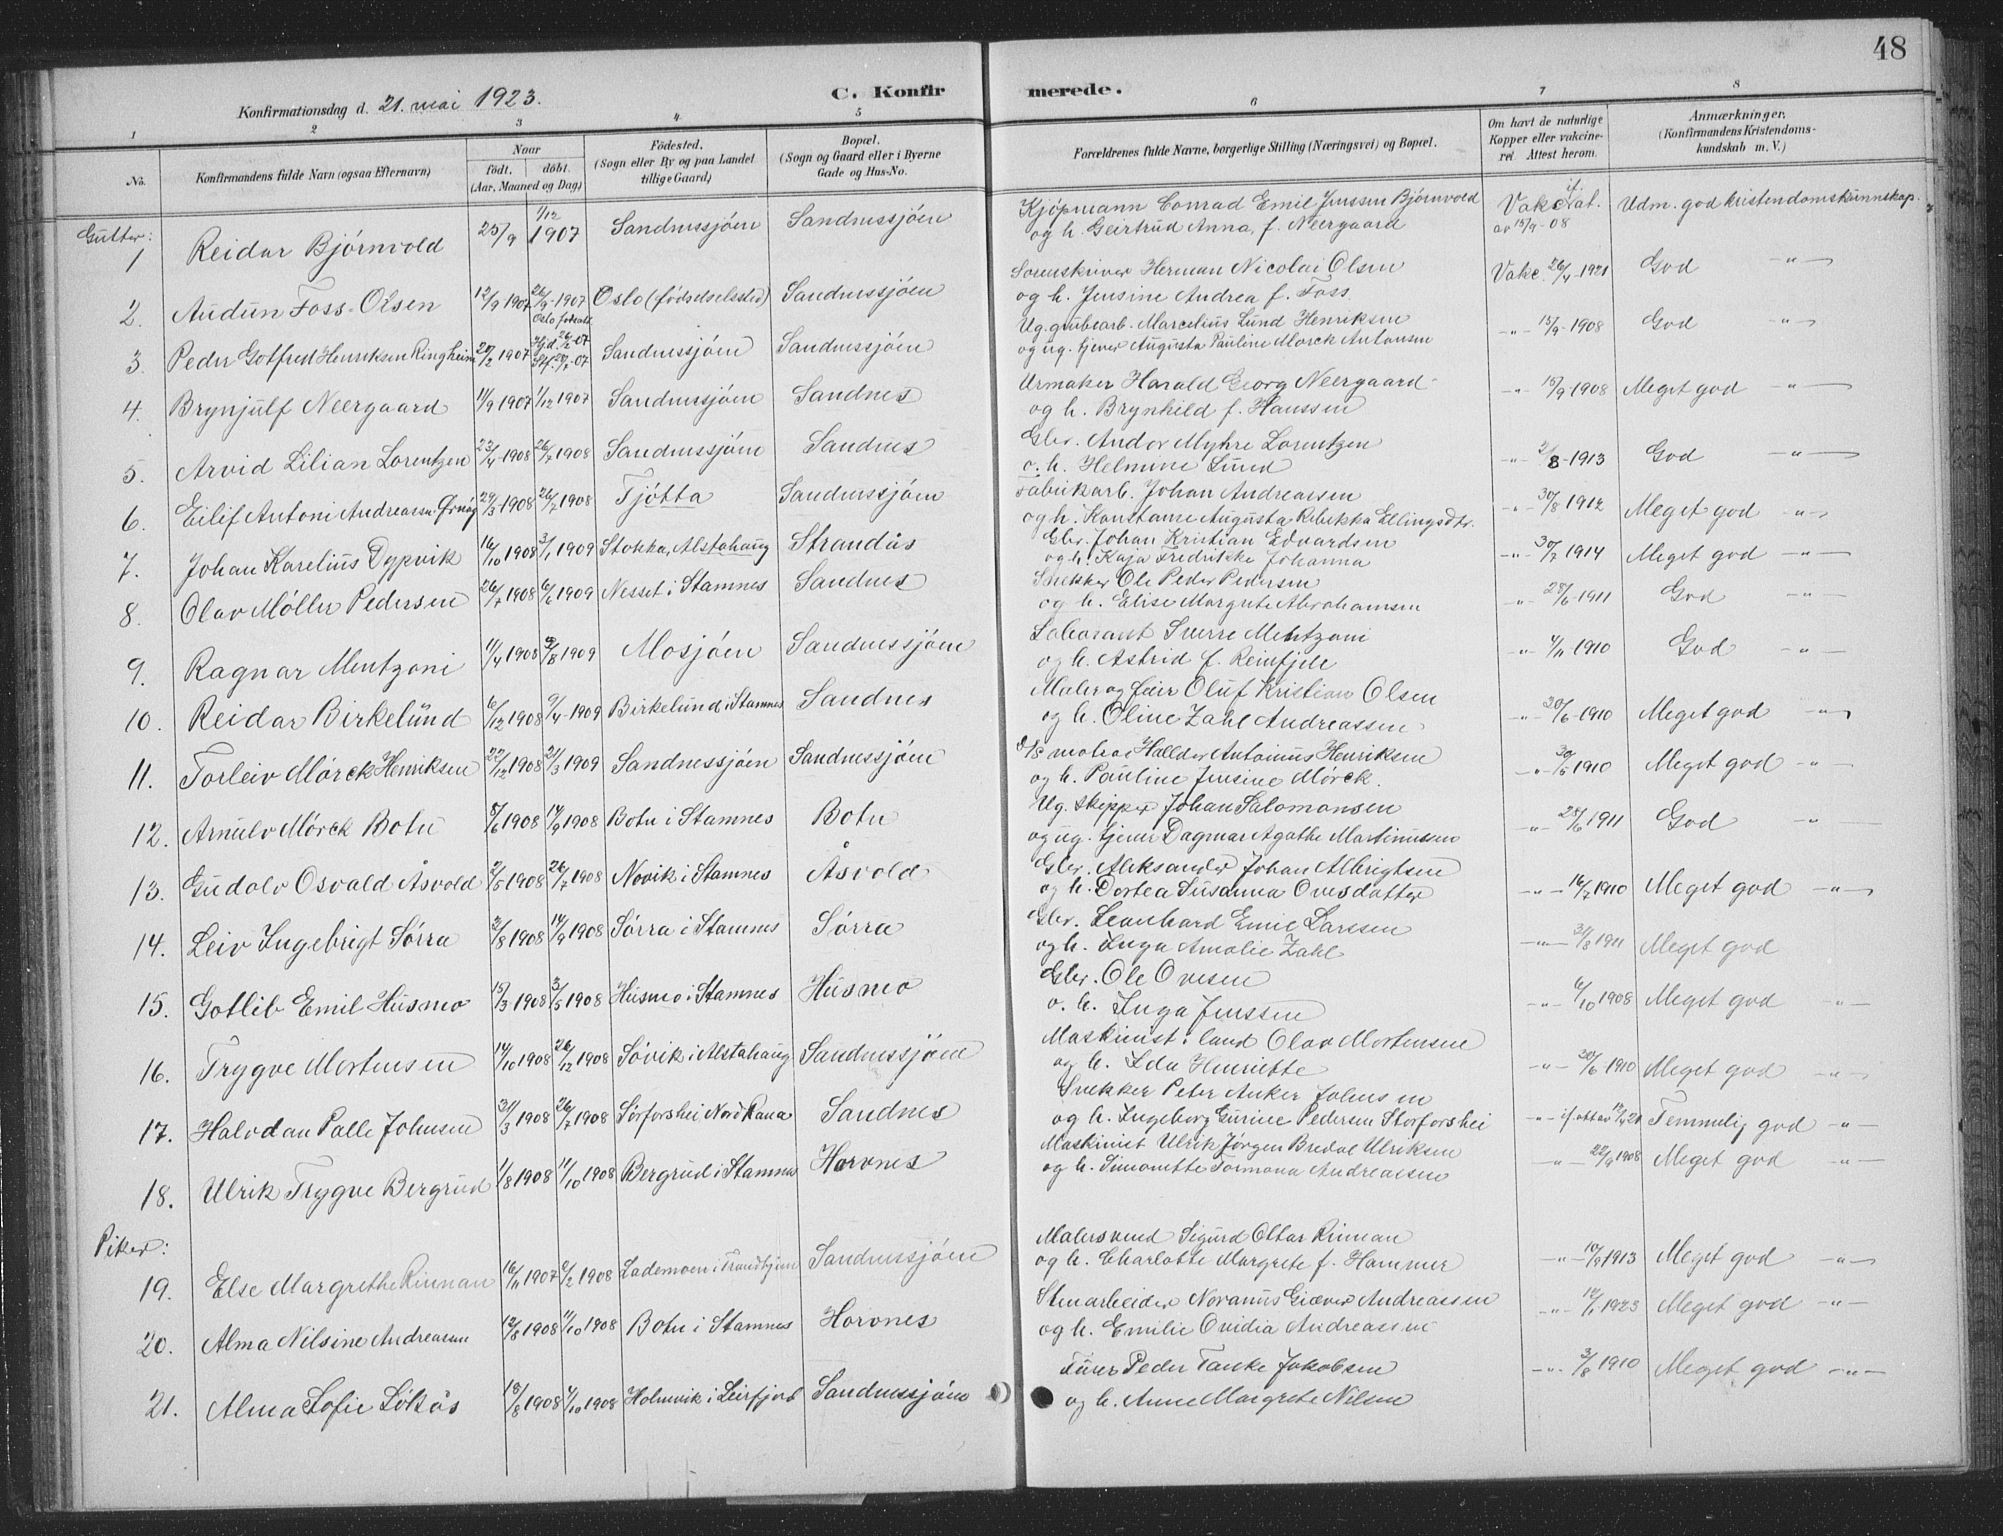 48
Konfirmationsdag d. 21. mai 1923.
C. Konfirmerede.
1 2 3 4 5 6 7 8
No.
Konfirmandens fulde Navn (ogsaa Efternavn)
Naar
født. døbt.
(Aar, Maaned og Dag)
Fødested.
(Sogn eller By og paa Landet
tillige Gaard)
Bopæl.
(Sogn og Gaard eller i Byerne
Gade og Hus-No.
Forældrenes fulde Navne, borgerlige Stilling (Næringsvei) og Bopæl.
Om havt de naturlige
Kopper eller vakcine-
ret Attest herom.
Anmærkninger.
(Konfirmandens Kristendoms-
kundskab m. V.)
Gutter:
1 Reidar Bjørnvold 25/9 1/12 1907 Sandnessjøen Sandnessjøen Kjøpmann Conrad Emil Jenssen Bjørnvold
og h. Geirtrud Anna, f. Neergaard Vakc.at. av 15/9-08 Udm. god kristendomskunnskap.
2. Audun Foss-Olsen 12/9 1907 26/9-1907 Oslo (fødselssted) Sandnessjøen Sorenskriver Herman Nicolai Olsen
og h. Jensine Andrea f. Foss. Vakc. 26/4-1921 God -"-
3. Peder Gotfred Henriksen Ringheim 20/2 1907 Hjd. 26/2-07 Sandnessjøen Sandnessjøen Ug. grubearb. Marcelius Lund Henriksen
og ug. tjener Augusta Pauline Mørck Antonsen -"- 15/9-1908 God -"-
4. Brynjulf Neergaard 11/9 1907 1/12 1907 Sandnessjøen Sandnes Urmaker Harald Georg Neergaard
og h. Brynhild f. Hanssen -"- 15/9 1908 Meget god -"-
5. Arvid Lilian Lorentzen 23/4-1908 26/7 1908 Sandnessjøen Sandnes Gbr. Andor Myhre Lorentzen
o. h. Helmine Lund -"- 2/8-1913 God -"-
6. Eilif Antoni Andreassen 29/3-1908 26/7 1908 Tjøtta Sandnessjøen Fabrikarb. Johan Andreassen
og h. Konstanse Augusta Rebekka Ellingsdtr. -"- 30/8 1912 Meget god -"-
7. Johan Karelius Dypvik 16/10 1908 3/1 1909 Stokka, Alstahaug Strandås Gbr. Johan Kristian Edvardsen
og h. Kaja Fredrikke Johanna -"- 30/7 1914 Meget god -"-
8. Olav Møller Pedersen 26/7 1908 6/6 1909 Nesset i Stamnes Sandnes Snekker Ole Peder Pedersen
og h. Elise Margrete Abrahamsen -"- 28/6-1911 God -"-
9. Ragnar Mentzoni 11/4 1908 8/8 1909 Mosjøen Sandnessjøen Laborant Sverre Mentzoni
og h. Astrid f. Reinfjell -"- 4/11 1910 God -"-
10. Reidar Birkelund 6/12 1908 9/4-1909 Birkelund i Stamnes Sandnes Maler og feier Oluf Kristian Olsen
og h. Oline Zahl Andreassen -"- 30/6-1910 Meget god -"-
11. Torleiv Mørck Henriksen 22/12 1908 21/3 1909 Sandnessjøen Sandnessjøen Halldor Antonius Henriksen
og h. Pauline Jensine Mørck. -"- 30/6 1910 Meget god -"-
12. Arnulv Mørck Botn 8/6 1908 14/9 1908 Botn i Stamnes Botn Ug. skipper Johan Salomonsen
og ug. tjener Dagmar Agathe Martinussen -"- 28/6 1911 God -"-
13. Gudolv Osvald Åsvold 2/5 1908 26/7 1908 Novik i Stamnes Åsvold Gbr. Aleksander Johan Albrigtsen
og h. Dortea Susanna Ovesdatter -"- 16/7 1910 Meget god -"-
14. Leiv Ingebrigt Sørra 2/8 1908 14/9 1908 Sørra i Stamnes Sørra Gbr. Leonhard Emil Larssen
og h. Inga Amalie Zahl -"- 31/8 1911 Meget god
15. Gotlib Emil Husmo 15/3 1908 3/5 1908 Husmo i Stamnes Husmo Gbr. Ole Ovesen
o. h. Inga Jenssen -"- 6/10 1908 Meget god -"-
16. Trygve Mortensen 14/10 1908 26/12 1908 Søvik i Alstahaug Sandnessjøen Maskinist i land Olav Mortensen
og h. Ida Henriette -"- 30/6 1910 Meget god -"-
17. Halvdan Palle Johnsen 31/3 1908 26/7 1908 Storforshei Nord Rana Sandnes Snekker Peter Anker Johnsen
og h. Ingeborg Gurine Pedersen Storforshei -"- Temmelig god -"-
18. Ulrik Trygve Bergrud 1/8 1908 11/10 1908 Bergrud i Stamnes Horvnes Maskinist Ulrik Jørgen Bredal Ulriksen
og h. Simonette Tormona Andreassen -"- 22/9 1908 Meget god -"-
Piker:
19. Else Margrethe Rinnan 16/11 1907 9/2 1908 Lademoen i Trondhjem Sandnessjøen Malersvend Sigurd Ottar Rinnan
og h. Charlotte Margrete f. Hammer -"- 10/9 1913 Meget god -"-
20. Alma Nilsine Andreassen 12/8 1908 11/10 1908 Botn i Stamnes Horvnes Stenarbeider Novanus Giæver Andreassen
og h. Emilie Ovidia Andreassen -"- 12/1-1923 Meget god -"-
21. Alma Sofie Løkås 13/8 1908 4/10 1908 Holmvik i Leirfjord Sandnessjøen Furer Peder Tanke Jakobsen
og h. Anne Margrete Nilsen -"- 3/8 1910 Meget god -"-